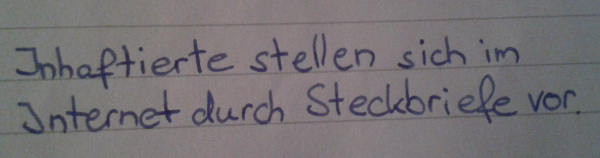 Inhaftierte stellen sich im
Internet durch Steckbriefe vor.